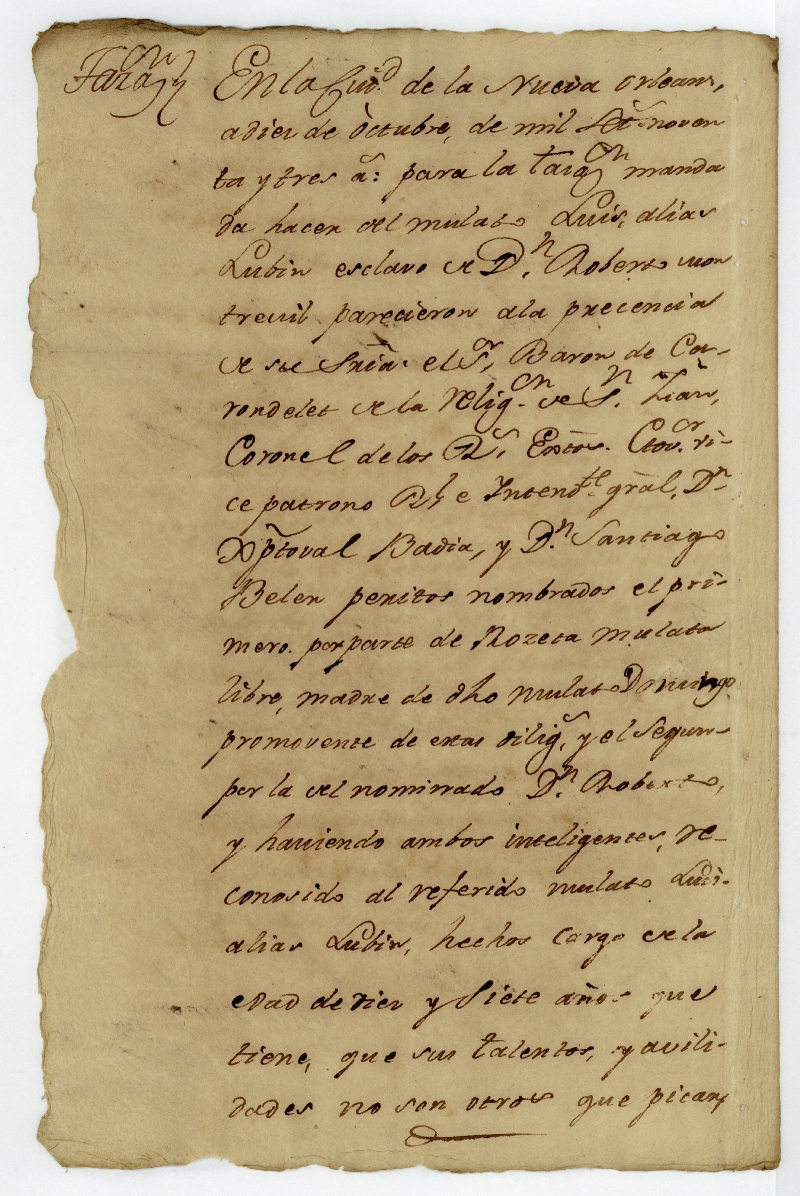 Tazaon
En la Ciud. de la Nueva Orleans,
a diez de Octubre, de mil Sets noven
ta y tres as: para la tazon manda
da hacer del mulato Luis, alias
Lubin esclavo de Dn. Roberto mon
treuil parecieron a la precencia
de su Sria. el Sr. Baron de Ca-
rondelet de la Relign. de Sn. Juan,
Coronel de los Rs. Extos. Govor. vi-
ce patrono Rl. e Intendte. gral, Dn.
Xptoval Badia, y Dn. Santiago
Belen peritos nombrados el pri-
mero. por parte de Rozeta mulata
libre, madre de dho mulato Domingo
promovente de estas diligs, y el Segun-
por la del nominado Dn. Roberto,
y haviendo ambos inteligentes, re-
conosido al referido mulato Luis.
alias Lubin, hechos cargo de la
edad de diez y Siete años que
tiene, que sus talentos, y avili-
dades no son otros que picar,